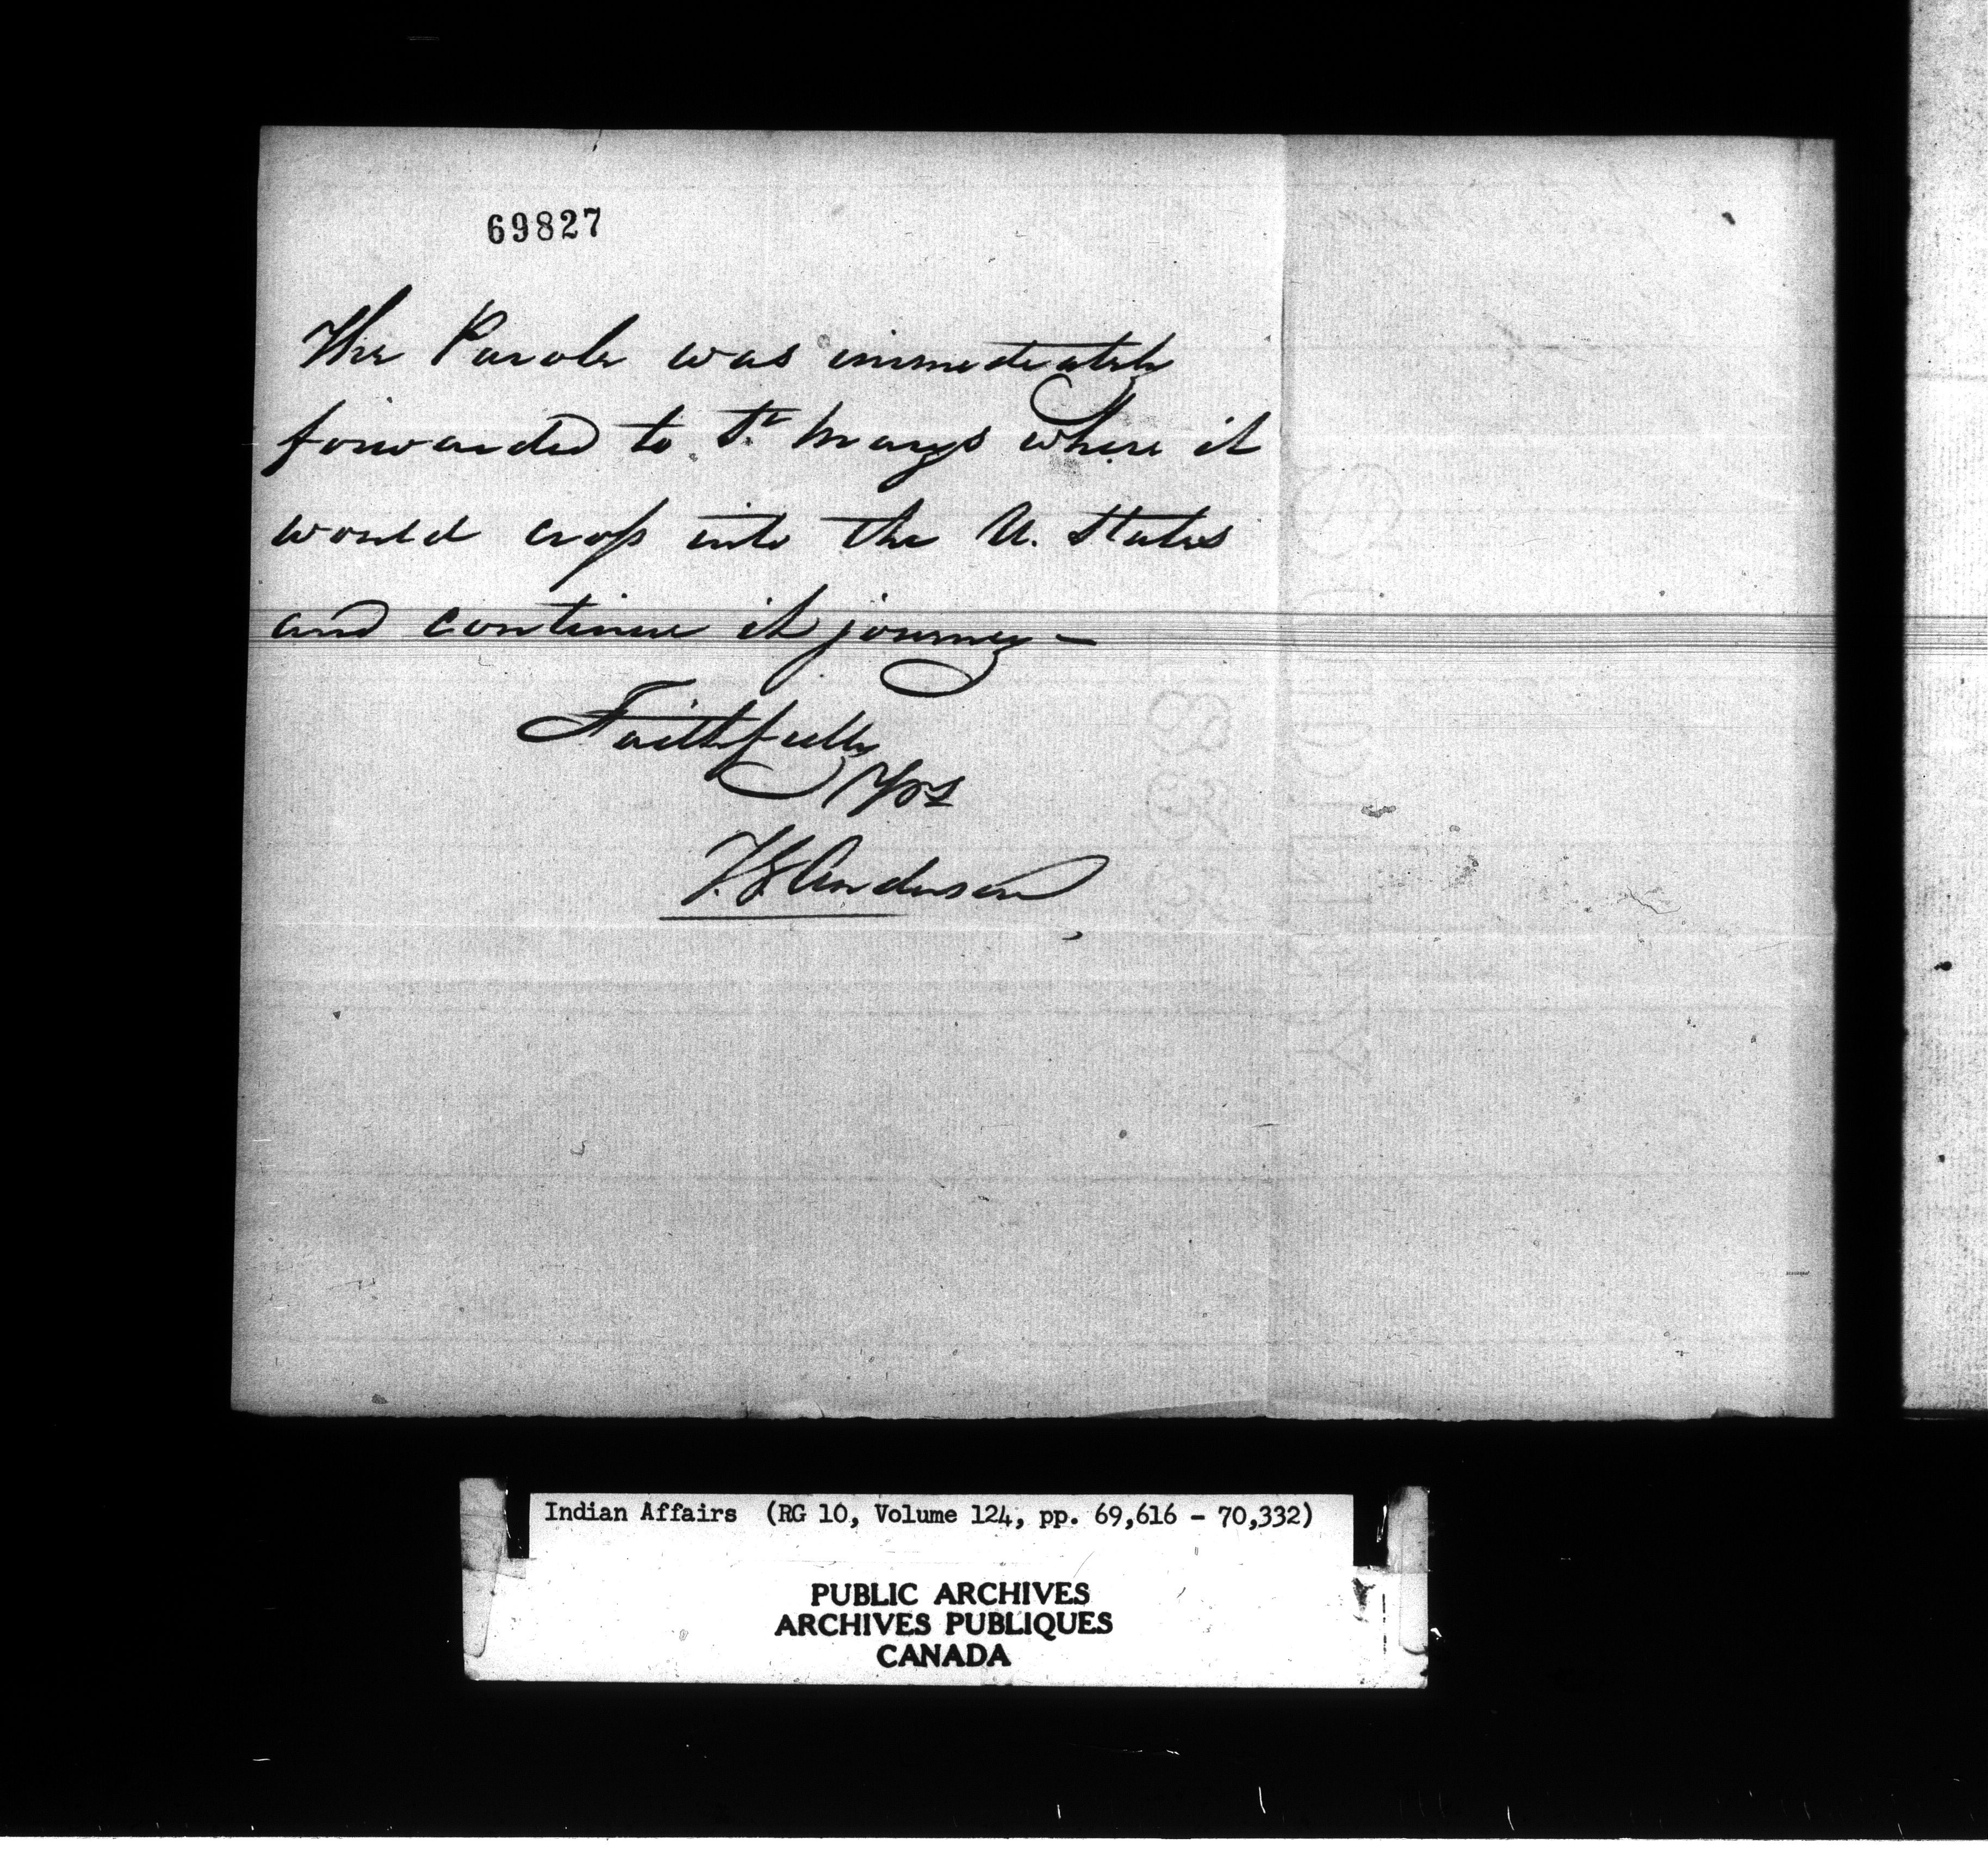 69827
The Parole was immediately
forwarded to St Marys where it
would cross into the U. States
and continue its journey —
Faithfully
Yrs
T. G. Anderson
Indian Affairs (RG 10, Volume 124, pp. 69,616 - 70,332)
PUBLIC ARCHIVES
ARCHIVES PUBLIQUES
CANADA